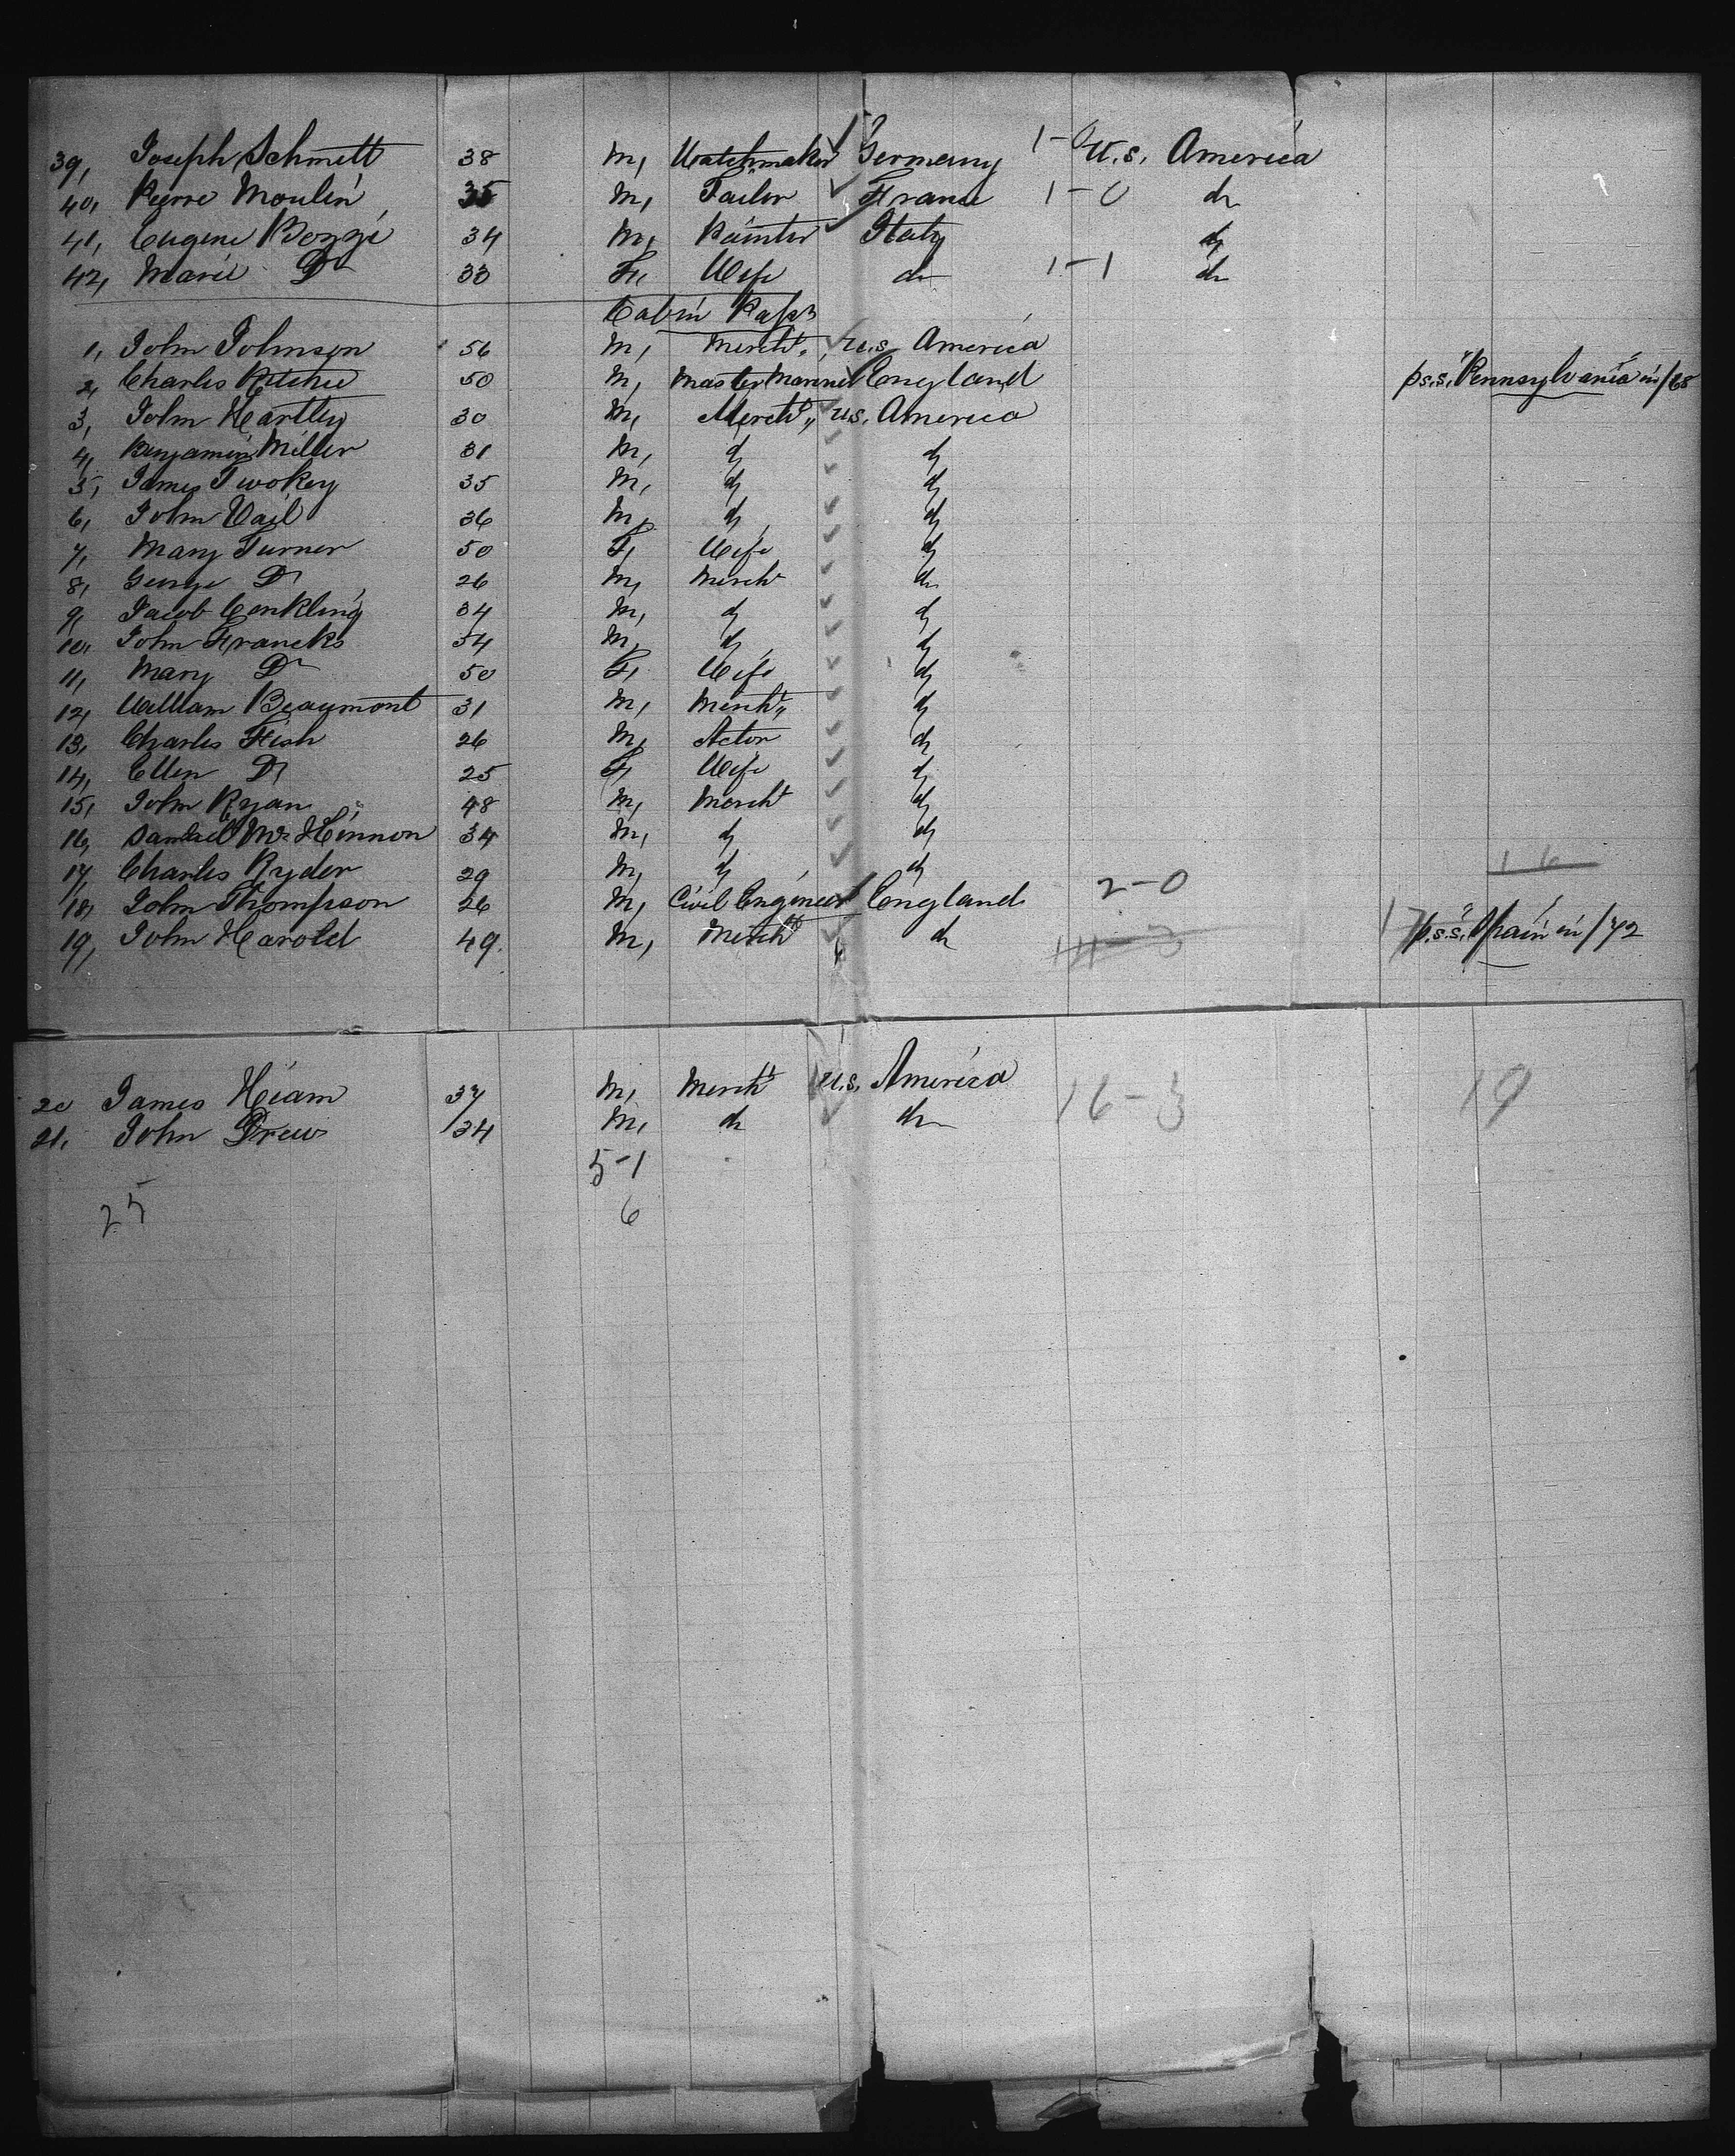 39, Joseph Schmitt 38 M, Watchmaker Germany 1-0 U.S. America
40, Pierre Moulin 35 M, Tailor France 1-0 do
41, Eugene Bozzi 34 M, Painter Italy do
42, Marie Do 33 F, Wife do 1-1 do
Cabin Passrs
1, John Johnson 56 M, Mercht. U.S. America
2, Charles Ritchie 50 M, Master Mariner England p s.s. "Pennsylvania" in /68
3, John Hartley 30 M, Mercht. U.S. America
4, Benjamin Miller 31 M, do do
5, James Twokey 35 M, do do
6, John Vail 36 M, do do
7, Mary Turner 50 F, Wife do
8, George Do 26 M, Mercht do
9, Jacob Conkling 34 M, do do
10, John Francks 54 M, do do
11, Mary Do 50 F, Wife do
12, William Beaumont 31 M, Mercht. do
13, Charles Fish 26 M, Actor do
14, Ellen Do 25 F, Wife do
15, John Ryan 48 M, Mercht do
16, Samuel Mc Hinnon 34 M, do do
17, Charles Ryder 29 M, do do 16
18, John Thompson 26 M, Civil Engineer England 2-0
19, John Harold 49. M, Mercht do 14-3 17 p. s.s. "Spain" in /72
20 James Hiam 37 M, Mercht U.S. America 16-3 19
21, John Drew 34 M, do do
5-1
25 6